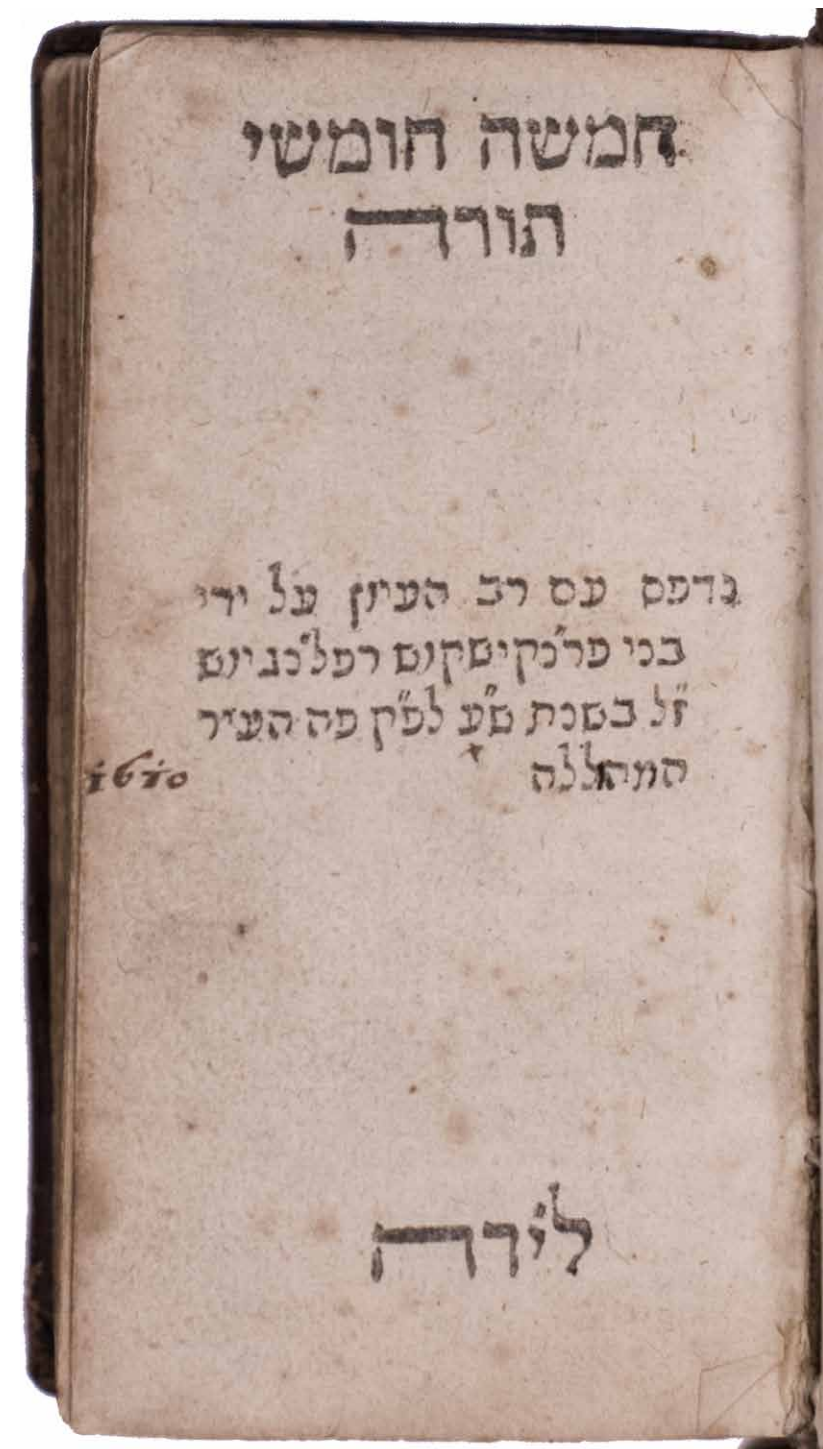 חמשה חומשי
תורה
נדפס עם רב העיון על ידי
בני פרנקישקוש רפלנגיוש
ז״ל בשנת ש״ע לפ״ק פה העיר
המהללה
1610
לידה